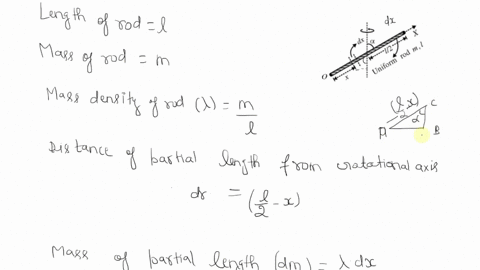 Length of rod = l
Mass of rod = m
Mass density of rod (λ) = m/l
Distance of partial length from rotational axis
dr = (l/2 - x)
Mass of partial length (dm) = λ dx
dx
X
dx
α
l/2
x
O
Uniform rod m, l
(l/2 - x)
C
α
A
B